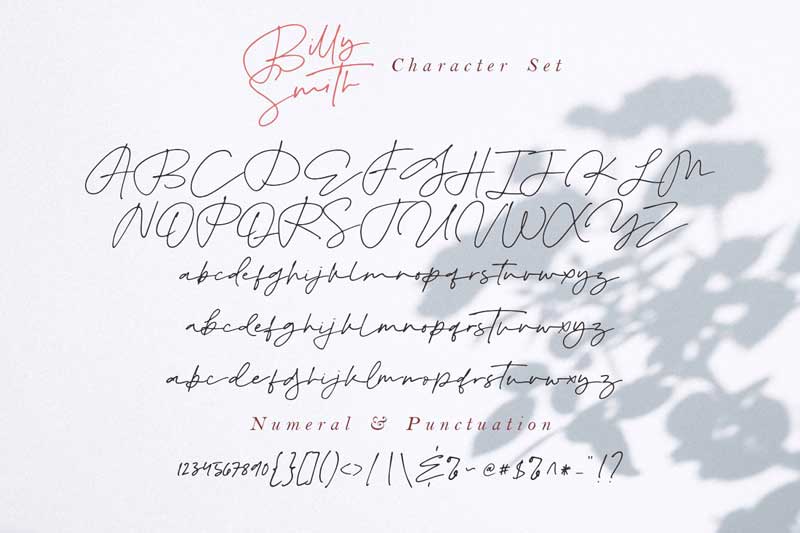 Billy
Smith
Character Set
ABCDEFGHIJKLM
NOPQRSTUVWXYZ
abcdefghijklmnopqrstuvwxyz
abcdefghijklmnopqrstuvwxyz
abcdefghijklmnopqrstuvwxyz
Numeral & Punctuation
1234567890{}[]()<>/|\&%~@#$%^*_"!?